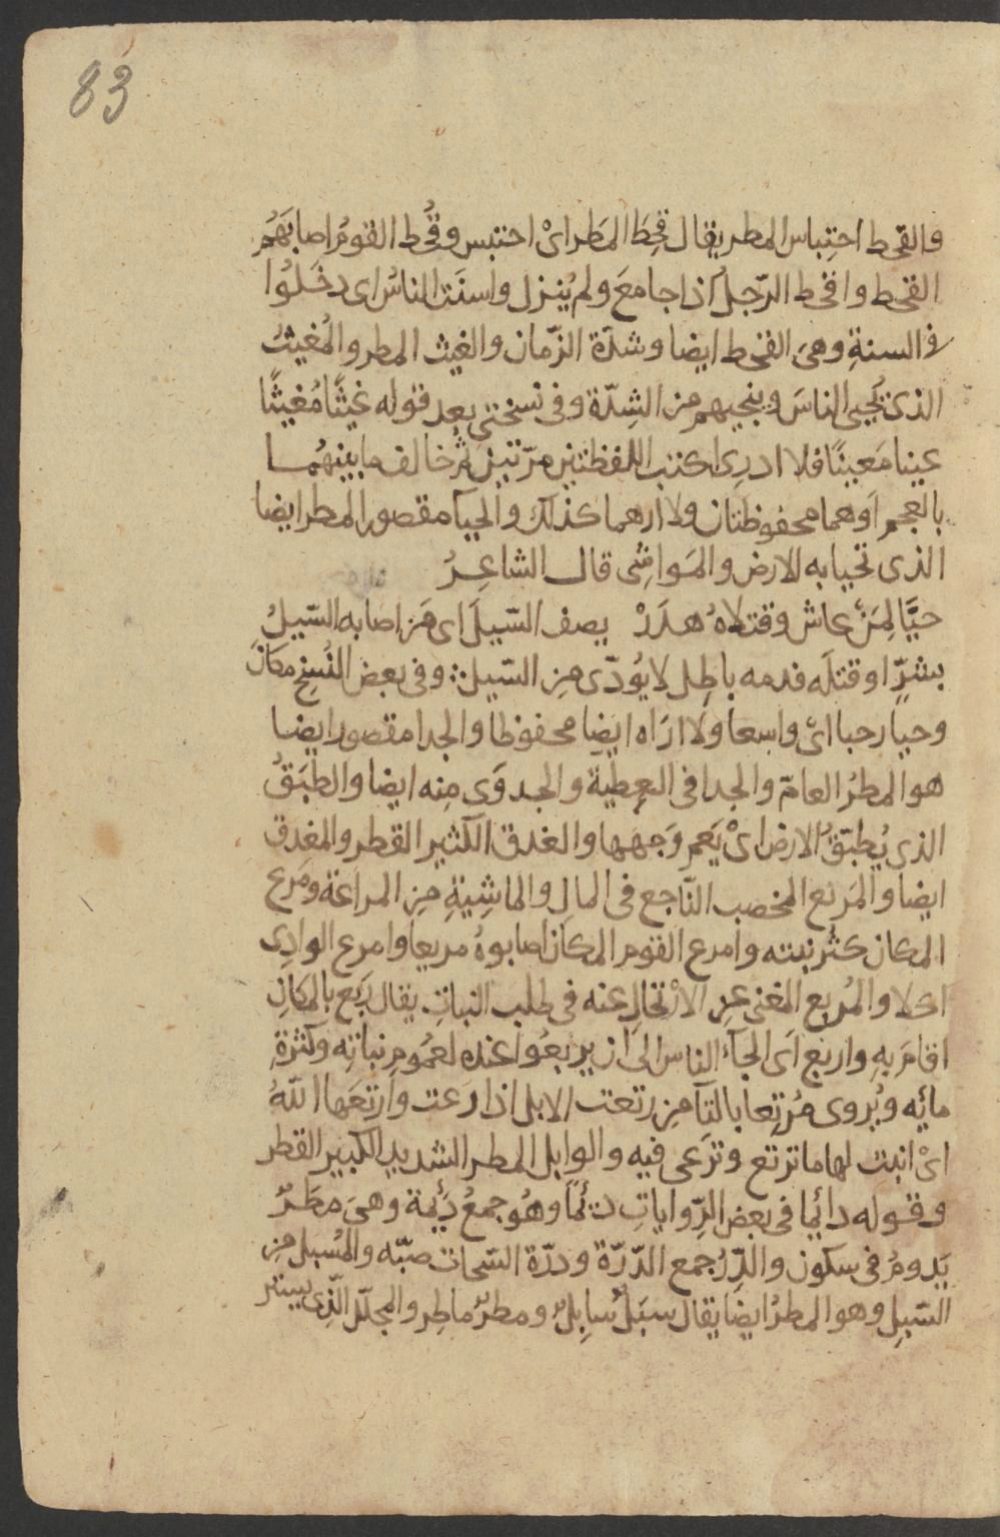 83
والقحط احتِباس المطر يقال قَحِطَ المَطَر اىْ احتبس وقُحِط القومُ اصابَهُم
القحط واقحط الرّجل اذا جامعَ ولم يُنزل واسنَت الناسُ اى دخَلُوا
فى السنةِ وهىَ القحط ايضا وشدّة الزّمان والغيث المطر والمُغيثُ
الذى يُحيى الناسَ وينجيهم مِن الشِدّة وفى نسختى بعد قوله غيثًا مُغيثًا
عينا مَعينًا فلا ادرِى اكتب اللفظتين مرّتين ثُم خالف ما بينهُما
بالعجم اَوهما محفوظتان ولا ارهما كذلك والحيآ مقصور المطر ايضا
الذى تحيا به الارض والمَواشِى قال الشاعِرُ
حيًّا لِمَنْ عاش وقتلاهُ هدَرْ يصف السّيلَ اى مَن اصابه السّيلُ
بشرٍّ او قتلَه فدمه باطِل لا يُوَدّى مِن السّيل وفى بعض النُسخِ مكانَ
وحيا رحبا اىْ واسعا ولا ارَاه ايضا محفوظا والجدا مقصور ايضا
هو المطرُ العامّ والجدا فى العطِيّة والجدوَى مِنه ايضا والطبَقُ
الذى يُطبّقُ الارض اىْ يَعم وَجهها والغدق الكثير القطر والمغدق
ايضا والمَريع المخصب النّاجع فى المالِ والماشِيةِ مِن المراعة ومَرع
المكان كثُر نبته وامرع القوم المكان اصابوهُ مريعا وامرع الوادِى
اكلا والمُربع المغنى عن الاِرْتحالِ عنه فى طلب النباتِ يقال رَبَع بالمكانِ
اقامَ بهِ واربع اَى الجآ الناس الى ان يربعُوا عنده لعُمومِ نباتِه وكثرةِ
مائِه ويُروى مُرتِعا بالتآ مِن رتعت الابل اذا رَعت وارتعَها اللّهُ
اىْ انبت لها ما ترتع وترَعى فيه والوابل المطر الشديد الكبير القطر
وقوله دائِما فى بعض الرِّواياتِ دِئَمًا وهُو جمعُ دِئمة وهىَ مطَرٌ
يَدومُ فى سكون والدِّرُ جمع الدّرّة ودرّة السّحاب صبّه والمُسبل مِن
السّبلِ وهو المطرُ ايضًا يقال سبَلٌ سَابِلٌ ومطرٌ ماطِر والمجلّل الّذِى يستر